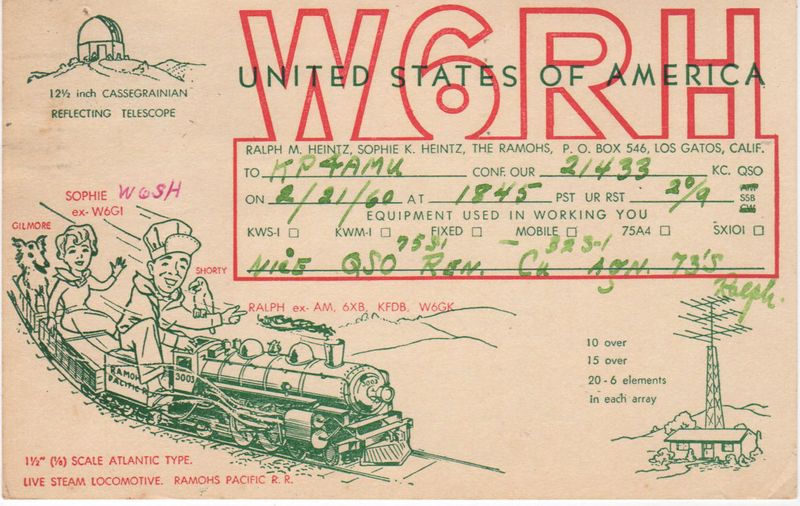 W6RH
UNITED STATES OF AMERICA
12½ inch CASSEGRAINIAN
REFLECTING TELESCOPE
RALPH M. HEINTZ, SOPHIE K. HEINTZ, THE RAMOHS, P. O. BOX 546, LOS GATOS, CALIF.
TO KP4AMU CONF. OUR 21433 KC. QSO
ON 2/21/60 AT 1845 PST UR RST 20/9 AM SSB CW
EQUIPMENT USED IN WORKING YOU
KWS-1 KWM-1 FIXED MOBILE 75A4 SX101
75S1 - 32S-1
NICE QSO REN. CU AGN. 73'S
Ralph.
SOPHIE W6SH
ex-W6GI
GILMORE
SHORTY
RALPH ex-AM, 6XB, KFDB, W6GK
RAMOHS
PACIFIC
3003
3003
10 over
15 over
20 - 6 elements
In each array
1½" (⅛) SCALE ATLANTIC TYPE.
LIVE STEAM LOCOMOTIVE. RAMOHS PACIFIC R. R.